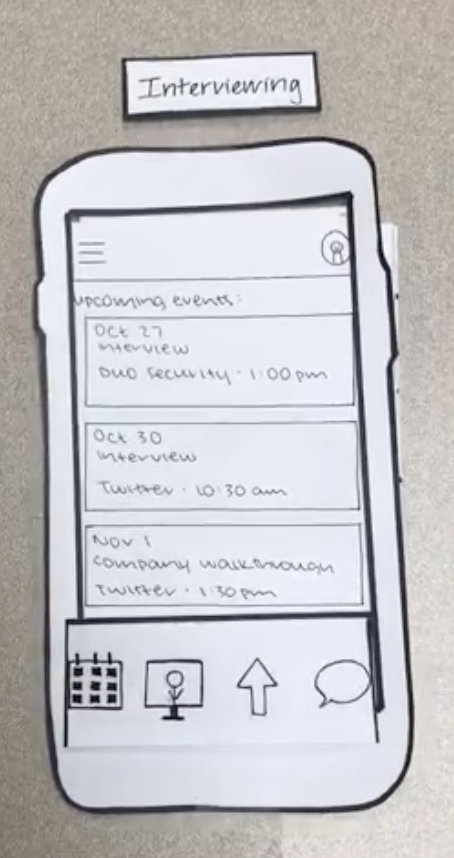 Interviewing
upcoming events:
Oct 27
interview
Duo Security · 1:00 pm
Oct 30
interview
Twitter · 10:30 am
Nov 1
company walkthrough
Twitter · 1:30 pm